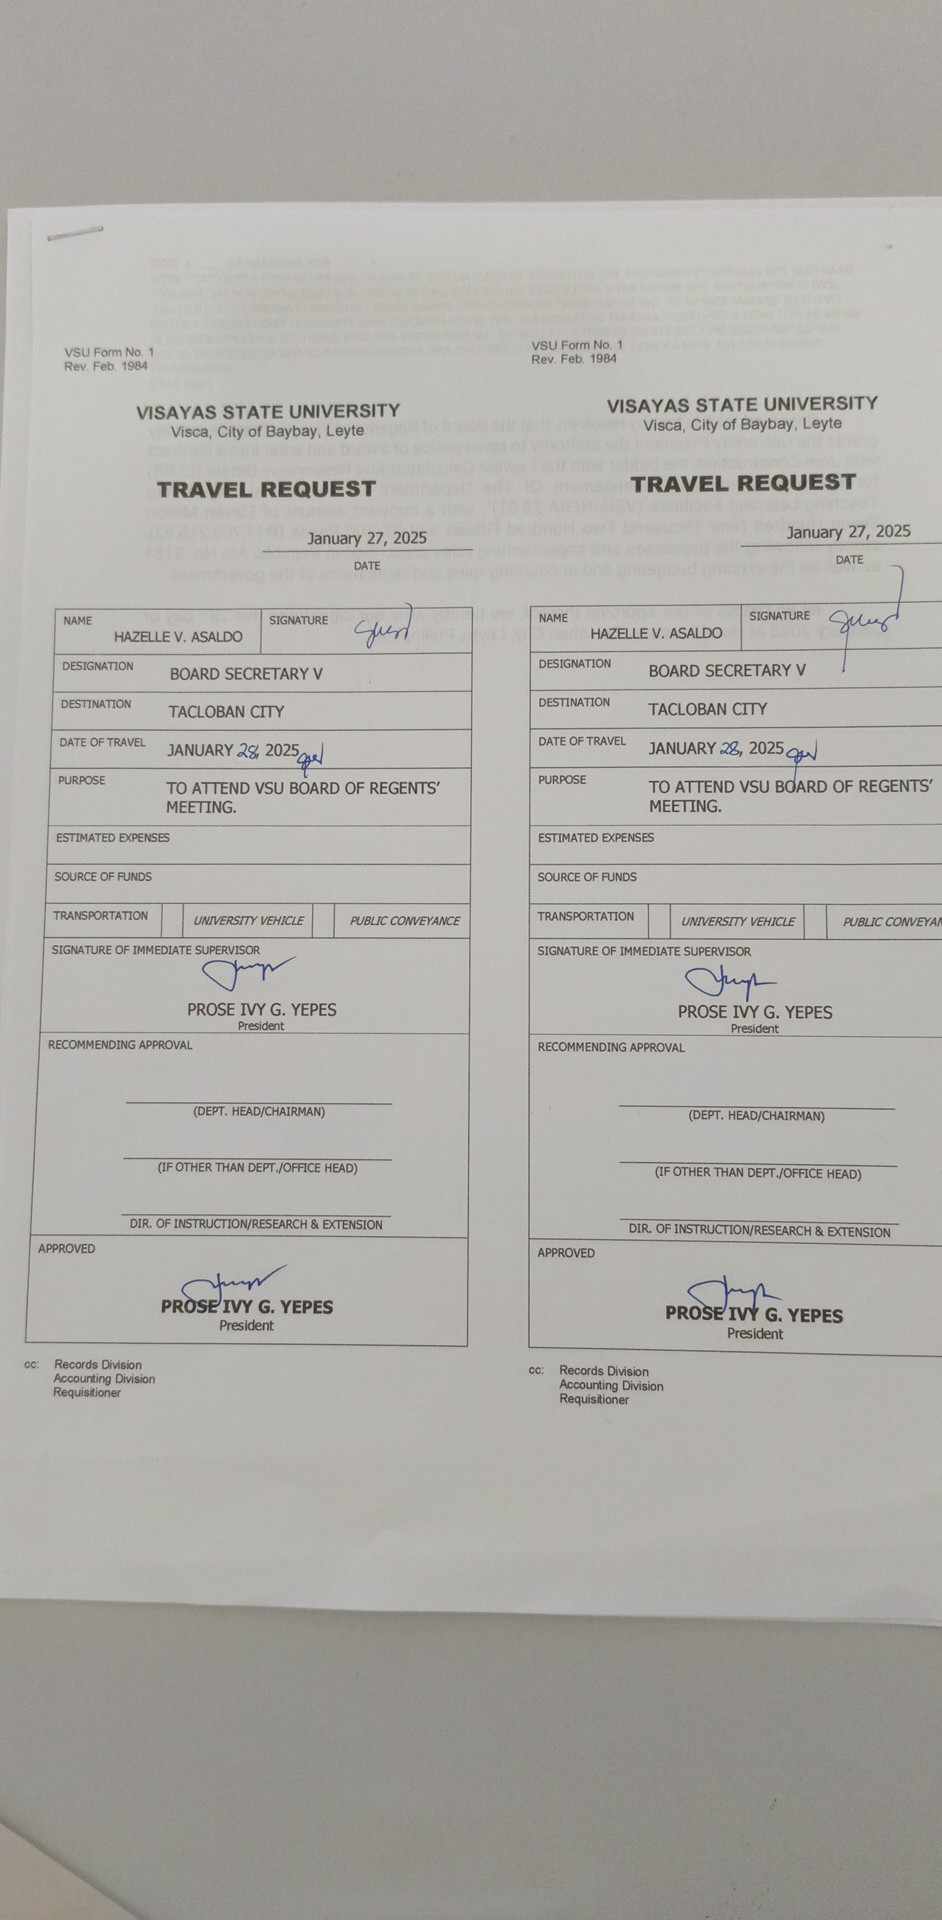 VSU Form No. 1
Rev. Feb. 1984
VISAYAS STATE UNIVERSITY
Visca, City of Baybay, Leyte
TRAVEL REQUEST
January 27, 2025
DATE
NAME
HAZELLE V. ASALDO
SIGNATURE
DESIGNATION
BOARD SECRETARY V
DESTINATION
TACLOBAN CITY
DATE OF TRAVEL
JANUARY 28, 2025
PURPOSE
TO ATTEND VSU BOARD OF REGENTS'
MEETING.
ESTIMATED EXPENSES
SOURCE OF FUNDS
TRANSPORTATION
UNIVERSITY VEHICLE
PUBLIC CONVEYANCE
SIGNATURE OF IMMEDIATE SUPERVISOR
PROSE IVY G. YEPES
President
RECOMMENDING APPROVAL
(DEPT. HEAD/CHAIRMAN)
(IF OTHER THAN DEPT./OFFICE HEAD)
DIR. OF INSTRUCTION/RESEARCH & EXTENSION
APPROVED
PROSE IVY G. YEPES
President
cc: Records Division
Accounting Division
Requisitioner
VSU Form No. 1
Rev. Feb. 1984
VISAYAS STATE UNIVERSITY
Visca, City of Baybay, Leyte
TRAVEL REQUEST
January 27, 2025
DATE
NAME
HAZELLE V. ASALDO
SIGNATURE
DESIGNATION
BOARD SECRETARY V
DESTINATION
TACLOBAN CITY
DATE OF TRAVEL
JANUARY 28, 2025
PURPOSE
TO ATTEND VSU BOARD OF REGENTS'
MEETING.
ESTIMATED EXPENSES
SOURCE OF FUNDS
TRANSPORTATION
UNIVERSITY VEHICLE
PUBLIC CONVEYAN
SIGNATURE OF IMMEDIATE SUPERVISOR
PROSE IVY G. YEPES
President
RECOMMENDING APPROVAL
(DEPT. HEAD/CHAIRMAN)
(IF OTHER THAN DEPT./OFFICE HEAD)
DIR. OF INSTRUCTION/RESEARCH & EXTENSION
APPROVED
PROSE IVY G. YEPES
President
cc: Records Division
Accounting Division
Requisitioner